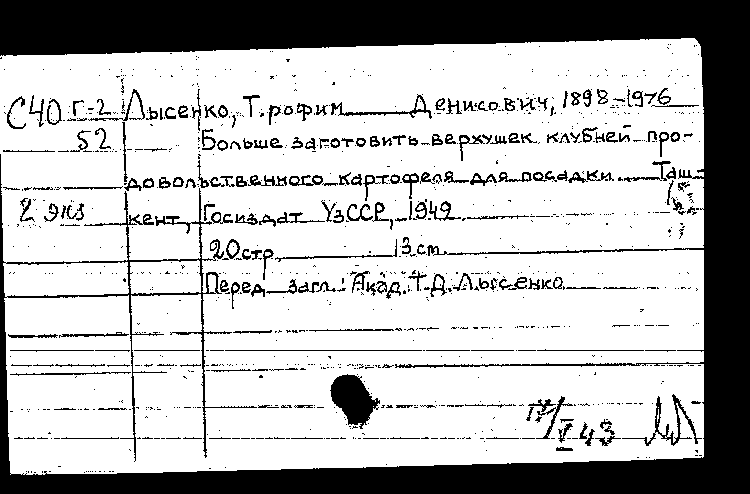 С40 Г-2 Лысенко, Трофим Денисович, 1898-1976
52 Больше заготовить верхушек клубней про-
довольственного картофеля для посадки. Таш-
2 экз кент, Госиздат УзССР, 1942
20 стр. 13 см.
Перед загл.: Акад. Т.Д. Лысенко
V 43